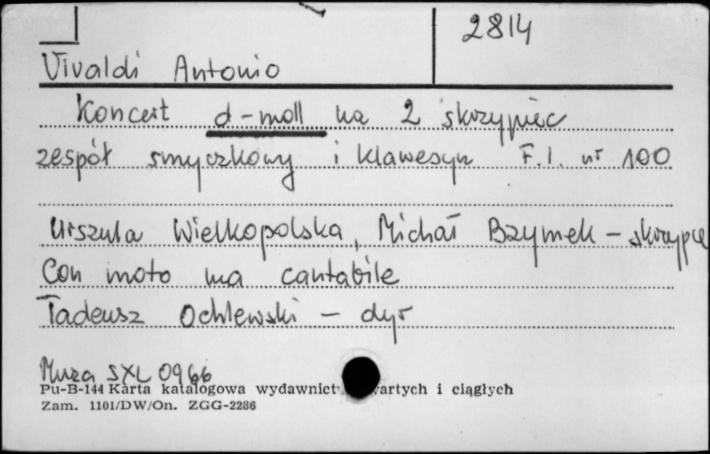 2814
Vivaldi Antonio
Koncert d-moll na 2 skrzypiec
zespół smyczkowy i klawesyn F.I. nr 100
Urszula Wielkopolska, Michał Bzymek - skrzypce
Con moto ma cantabile
Tadeusz Ochlewski - dyr
Muza SXL 0966
Pu-B-144 Karta katalogowa wydawnict wartych i ciągłych
Zam. 1101/DW/On. ZGG-2286